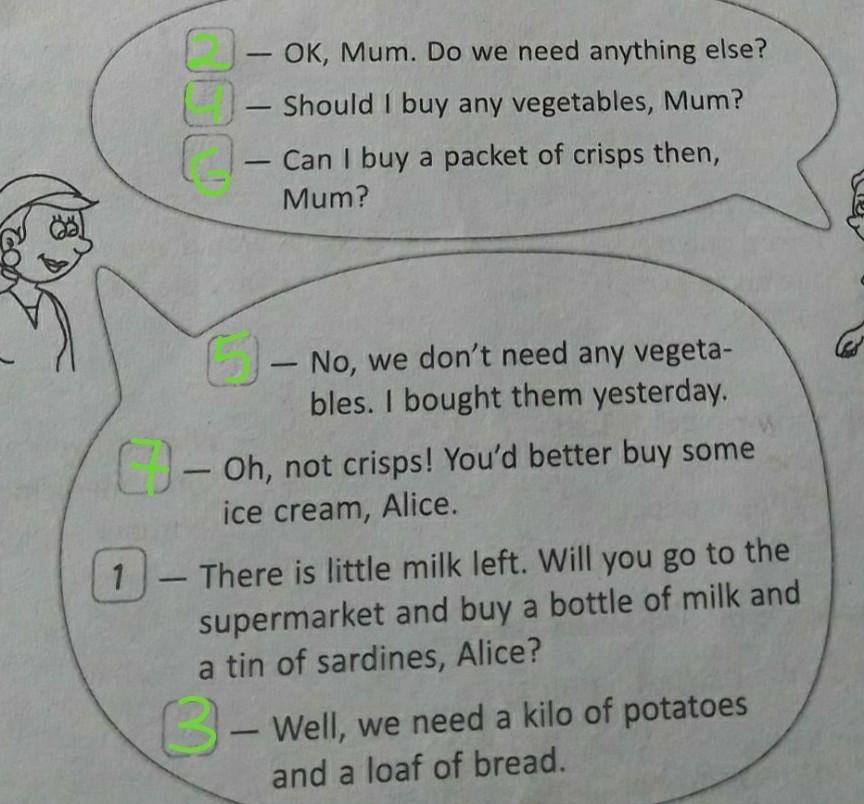 2 — OK, Mum. Do we need anything else?
4 — Should I buy any vegetables, Mum?
6 — Can I buy a packet of crisps then,
Mum?
5 — No, we don't need any vegeta-
bles. I bought them yesterday.
7 — Oh, not crisps! You'd better buy some
ice cream, Alice.
1 — There is little milk left. Will you go to the
supermarket and buy a bottle of milk and
a tin of sardines, Alice?
3 — Well, we need a kilo of potatoes
and a loaf of bread.